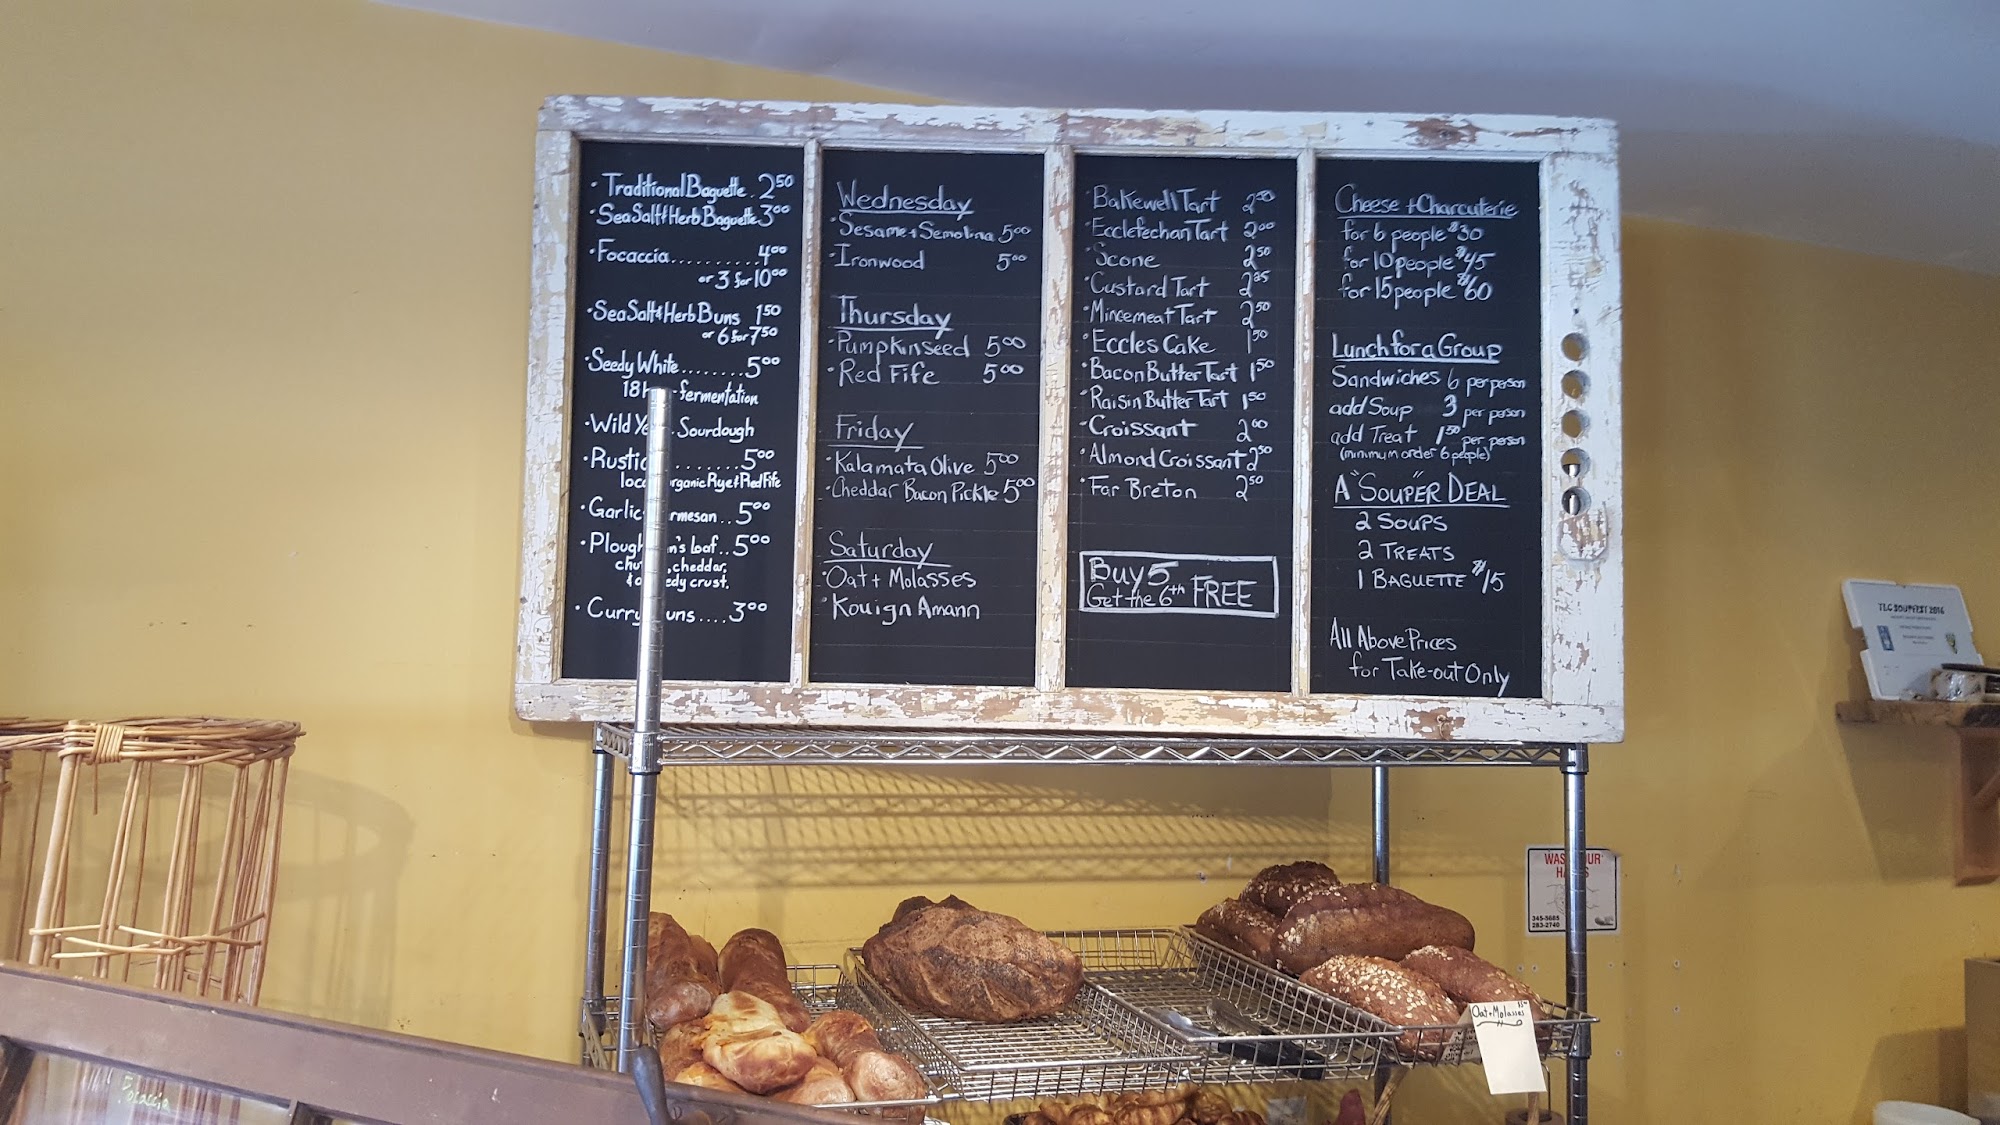 · Traditional Baguette . 2 50
· Sea Salt & Herb Baguette. 3 00
· Focaccia.......... 4 00
or 3 for 10 00
· Sea Salt & Herb Buns 1 50
or 6 for 7 50
· Seedy White........ 5 00
18 fermentation
· Wild Sourdough
· Rustic ....... 5 00
organic Rye & Red Fife
· Garlic .. 5 00
Loaf.. 5 00
cheddar,
crust.
· Curry .... 3 00
Wednesday
· Sesame + Semolina 5 00
· Ironwood 5 00
Thursday
· Pumpkinseed 5 00
· Red Fife 5 00
Friday
· Kalamata Olive 5 00
· Cheddar Bacon Pickle 5 00
Saturday
· Oat + Molasses
· Kouign Amann
· Bakewell Tart 2 50
· Ecclefechan Tart 2 00
· Scone 2 50
· Custard Tart
· Mincemeat Tart 2 50
· Eccles Cake 1 50
· Bacon Butter Tart 1 50
· Raisin Butter Tart 1 50
· Croissant 2 00
· Almond Croissant 2 50
· Far Breton 2 50
Buy 5
Get the 6th FREE
Cheese + Charcuterie
for 6 people $30
for 10 people $45
for 15 people $60
Lunch for a Group
Sandwiches 6 per person
add Soup 3 per person
add Treat 1 50 per person
(minimum order 6 people)
A "SOUP"ER DEAL
2 SOUPS
2 TREATS
1 BAGUETTE $15
All Above Prices
for Take-out Only
TLC SOUPFEST 2016
345-5685
283-2740
Oat + Molasses
Focaccia